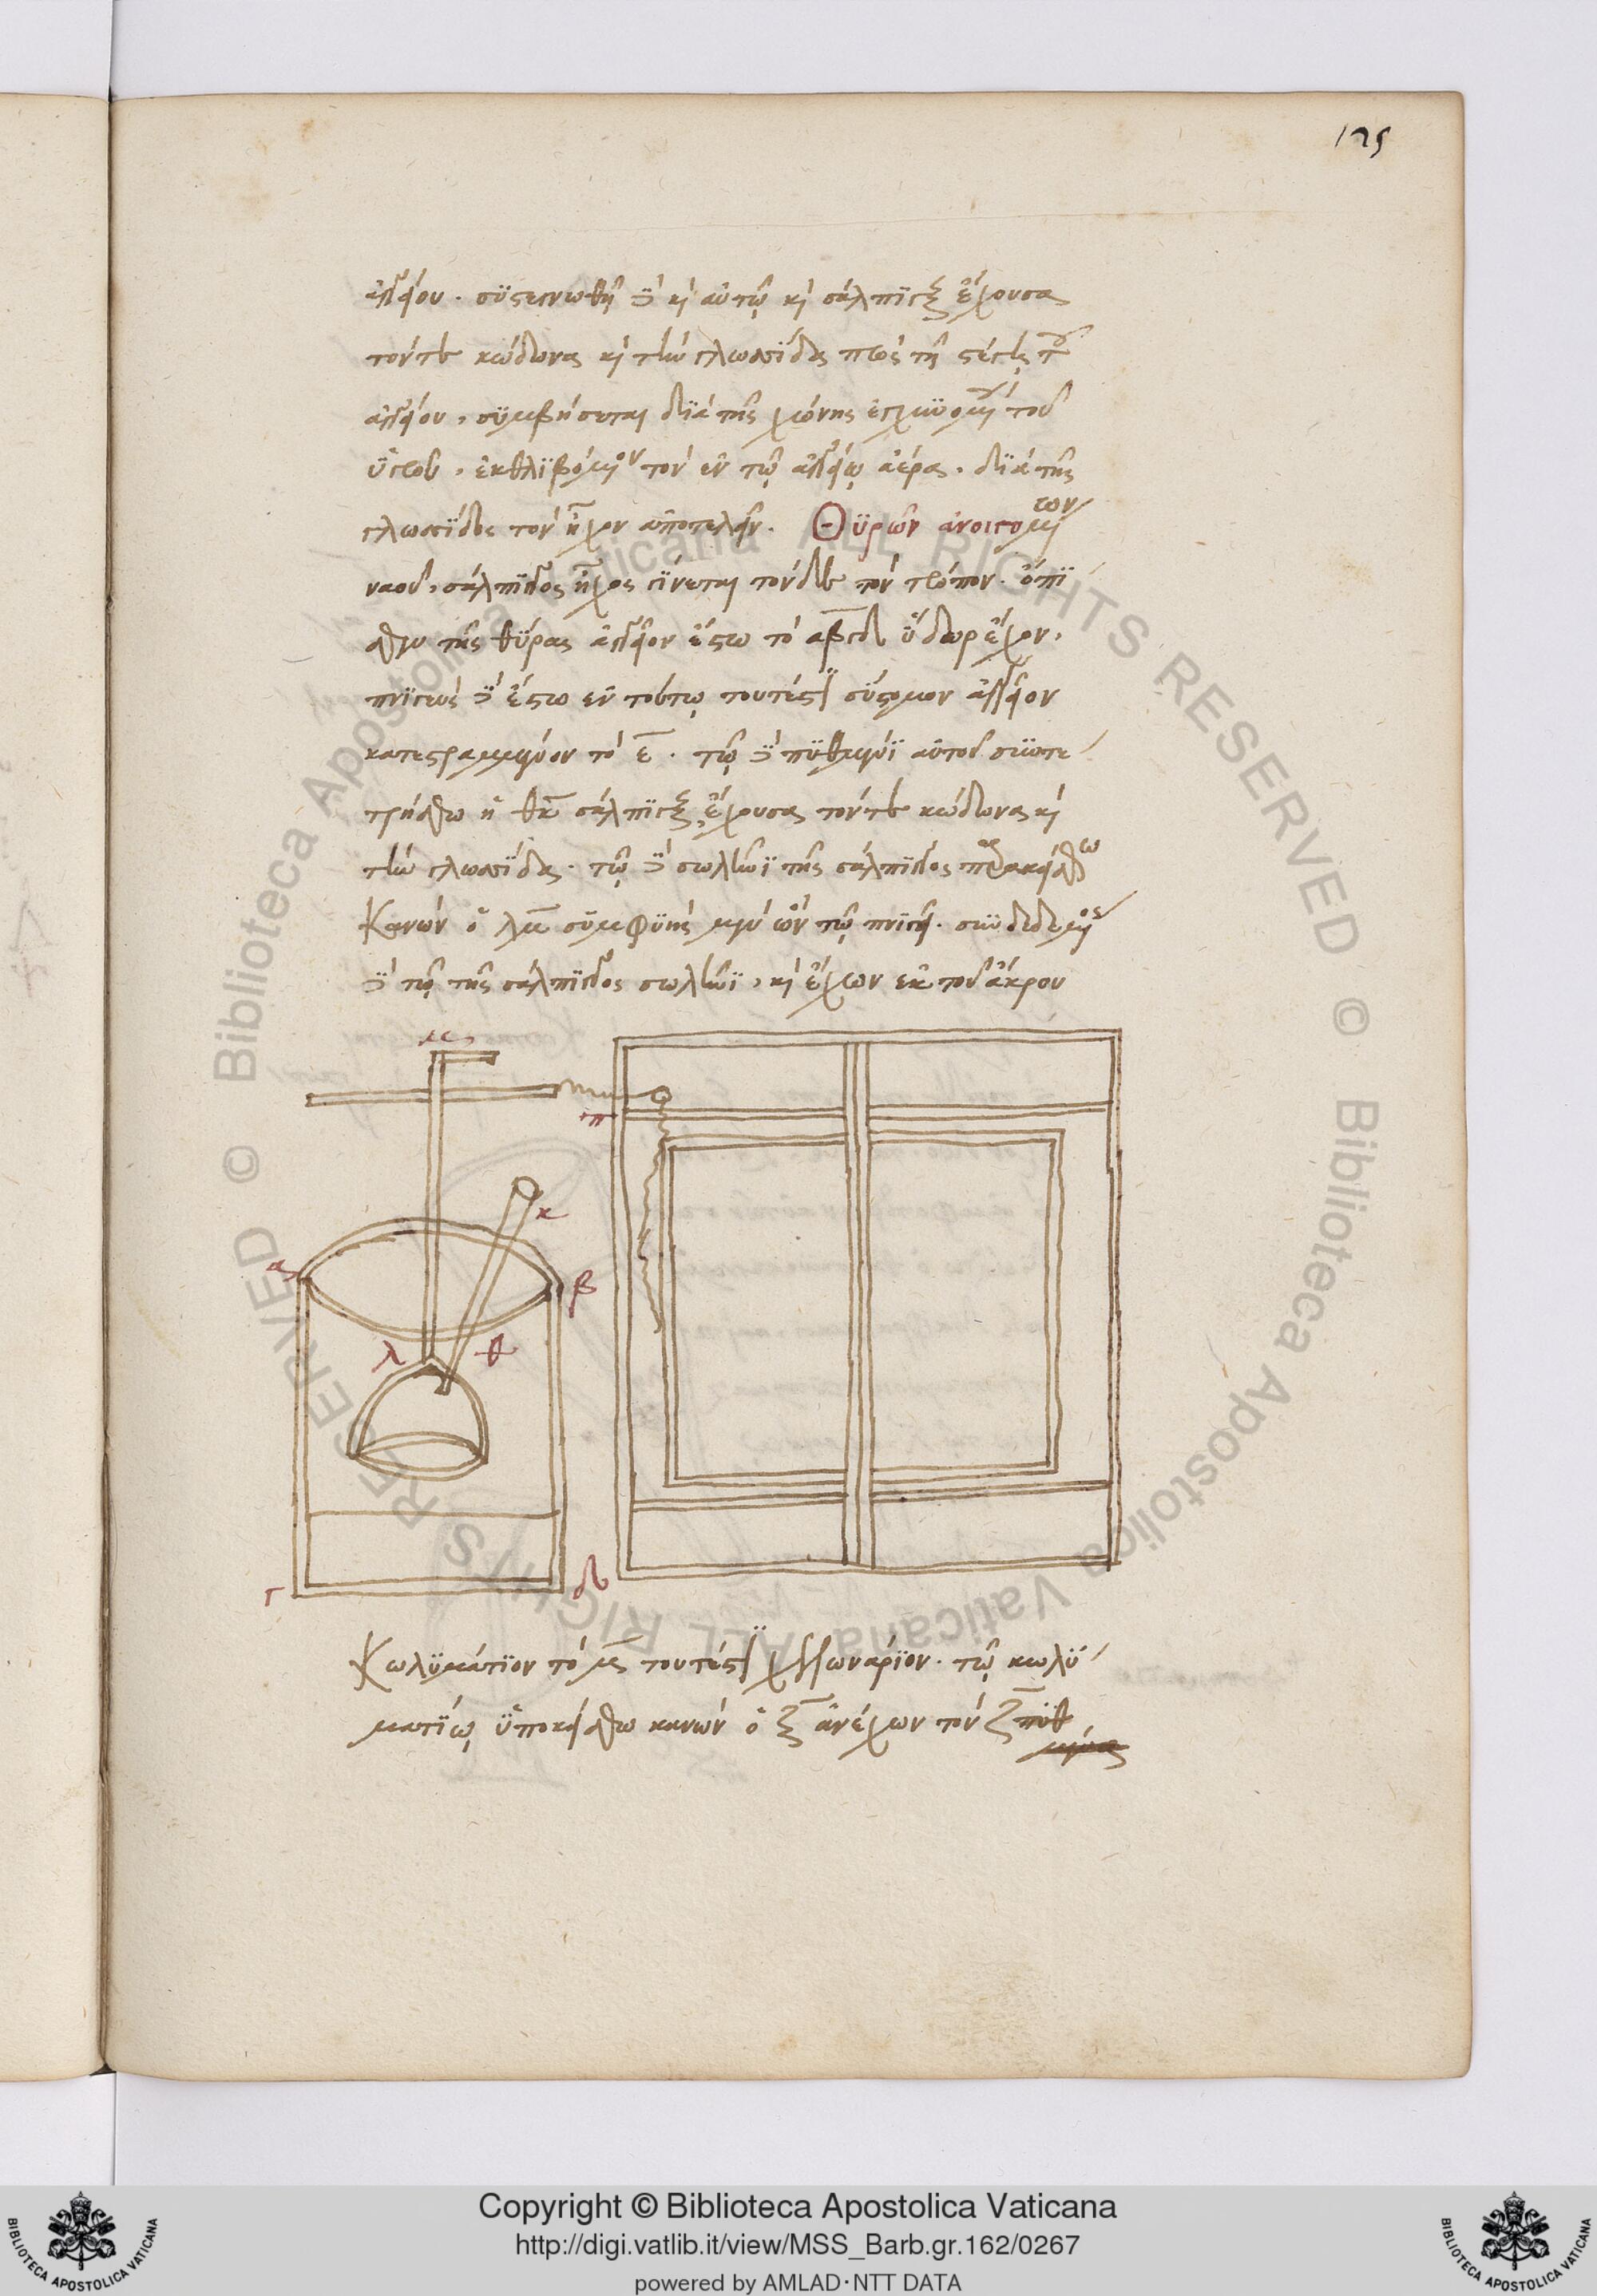 125
ἀγγείου. συστεγνωθῇ δὲ καὶ αὐτῷ καὶ σάλπιγξ ἔχουσα
τόν τε κώδωνα καὶ τὴν γλωσσίδα πρὸς τῇ στέγῃ τοῦ
ἀγγείου, συμβήσεται διὰ τῆς χώνης ἐγχυομένου τοῦ
ὑγροῦ, ἐκθλιβόμενον τὸν ἐν τῷ ἀγγείῳ ἀέρα, διὰ τῆς
γλωσσίδος τὸν ἦχον ἀποτελεῖν. Θυρῶν ἀνοιγομένων
ναοῦ, σάλπιγγος ἦχος γίνεται τόνδε τὸν τρόπον. ὄπι
σθεν τῆς θύρας ἀγγεῖον ἔστω τὸ αβγδ ὕδωρ ἔχον,
πνιγεὺς δὲ ἔστω ἐν τούτῳ τουτέστι σύστομον ἀγγεῖον
κατεστραμμένον τὸ ε. τῷ δὲ πυθμένι αὐτοῦ συντε
τρήσθω ἡ θκ σάλπιγξ, ἔχουσα τόν τε κώδωνα καὶ
τὴν γλωσσίδα. τῷ δὲ σωλῆνι τῆς σάλπιγγος παρακείσθω
κανὼν ὁ λμ συμφυὴς μὲν ὢν τῷ πνιγεῖ. συνδεδεμένος
δὲ τῷ τῆς σάλπιγγος σωλῆνι, καὶ ἔχων ἐκ τοῦ ἄκρου
π
κ
α
β
λ
θ
γ
δ
κωλυμάτιον τὸ μ τουτέστι χελωνάριον. τῷ κωλυ
ματίῳ ὑποκείσθω κανὼν ὁ ξ ἀνέχων τὸν ζ πυθ
μένα
Copyright © Biblioteca Apostolica Vaticana
http://digi.vatlib.it/view/MSS_Barb.gr.162/0267
powered by AMLAD·NTT DATA
BIBLIOTECA APOSTOLICA VATICANA
BIBLIOTECA APOSTOLICA VATICANA
© Biblioteca Apostolica Vaticana ALL RIGHTS RESERVED
© Biblioteca Apostolica Vaticana ALL RIGHTS RESERVED